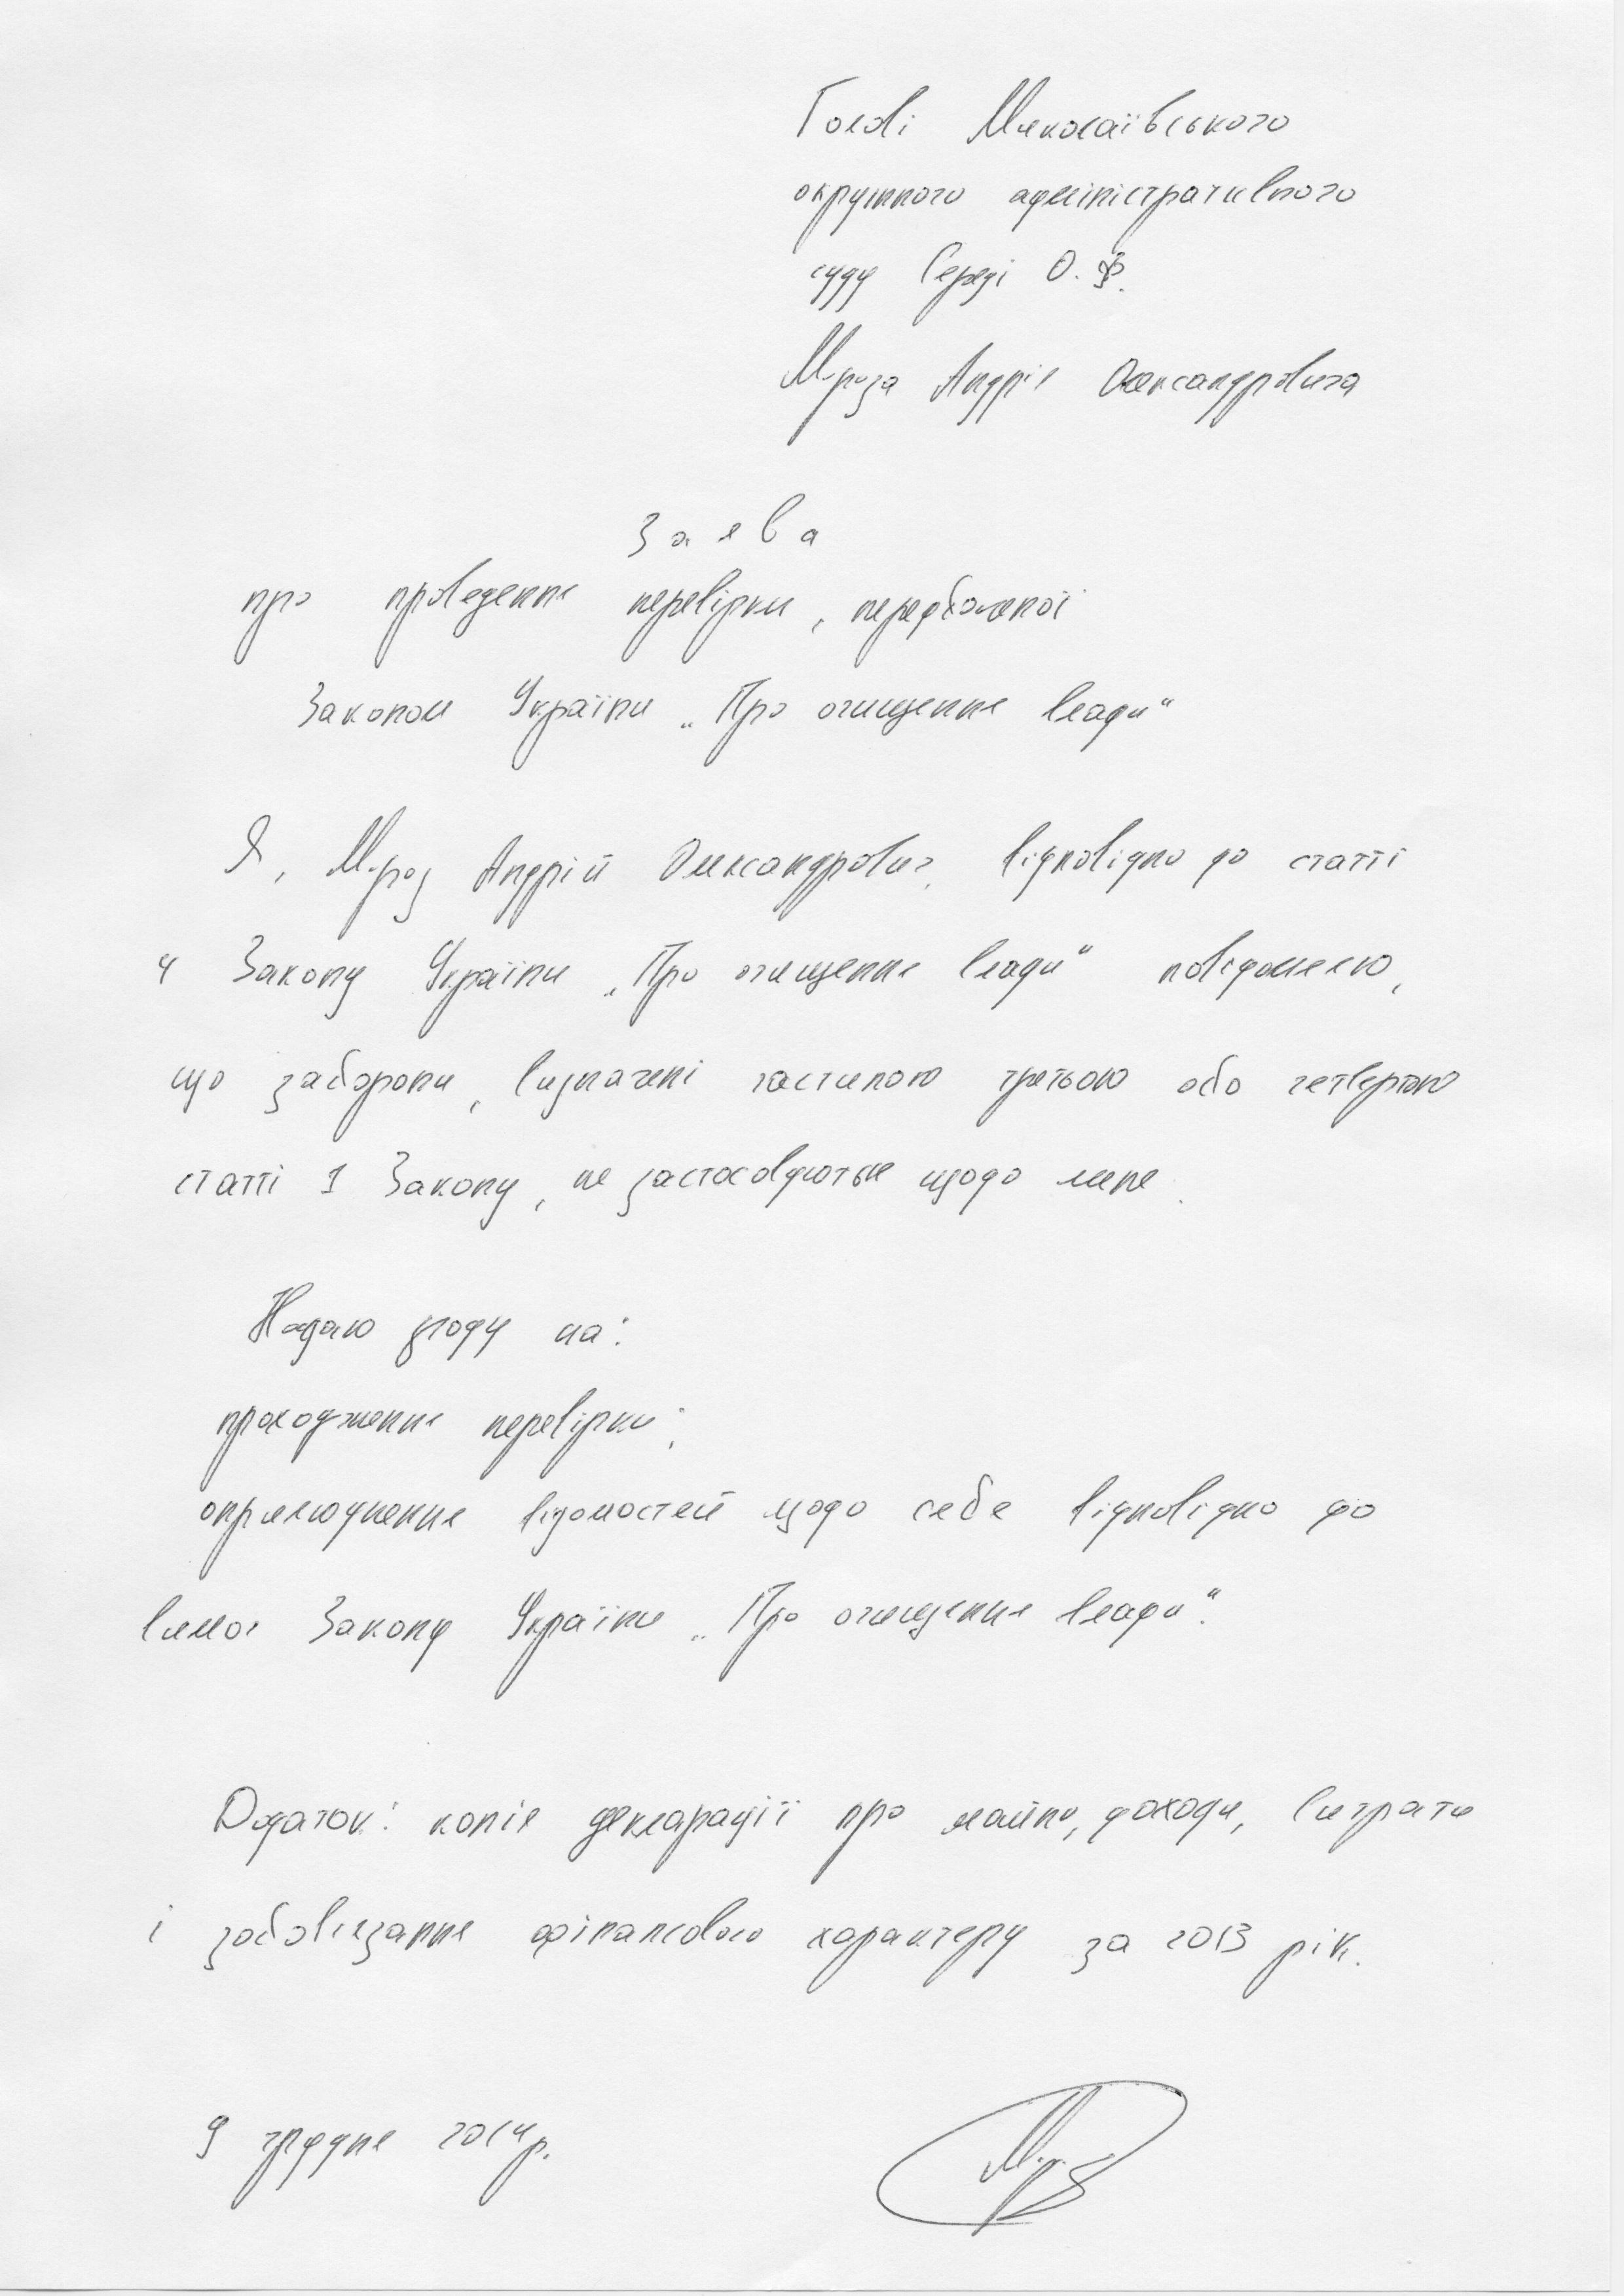 Голові Миколаївського
окружного адміністративного
суду Середі О.Ф.
Мороза Андрія Олександровича
Заява
про проведення перевірки, передбаченої
Законом України „Про очищення влади“
Я, Мороз Андрій Олександрович, відповідно до статті
4 Закону України „Про очищення влади“ повідомляю,
що заборони, визначені частиною третьою або четвертою
статті 1 Закону, не застосовуються щодо мене.
Надаю згоду на:
проходження перевірки;
оприлюднення відомостей щодо себе відповідно до
вимог Закону України „Про очищення влади“.
Додаток: копія декларації про майно, доходи, витрати
і зобов'язання фінансового характеру за 2013 рік.
9 грудня 2014р.